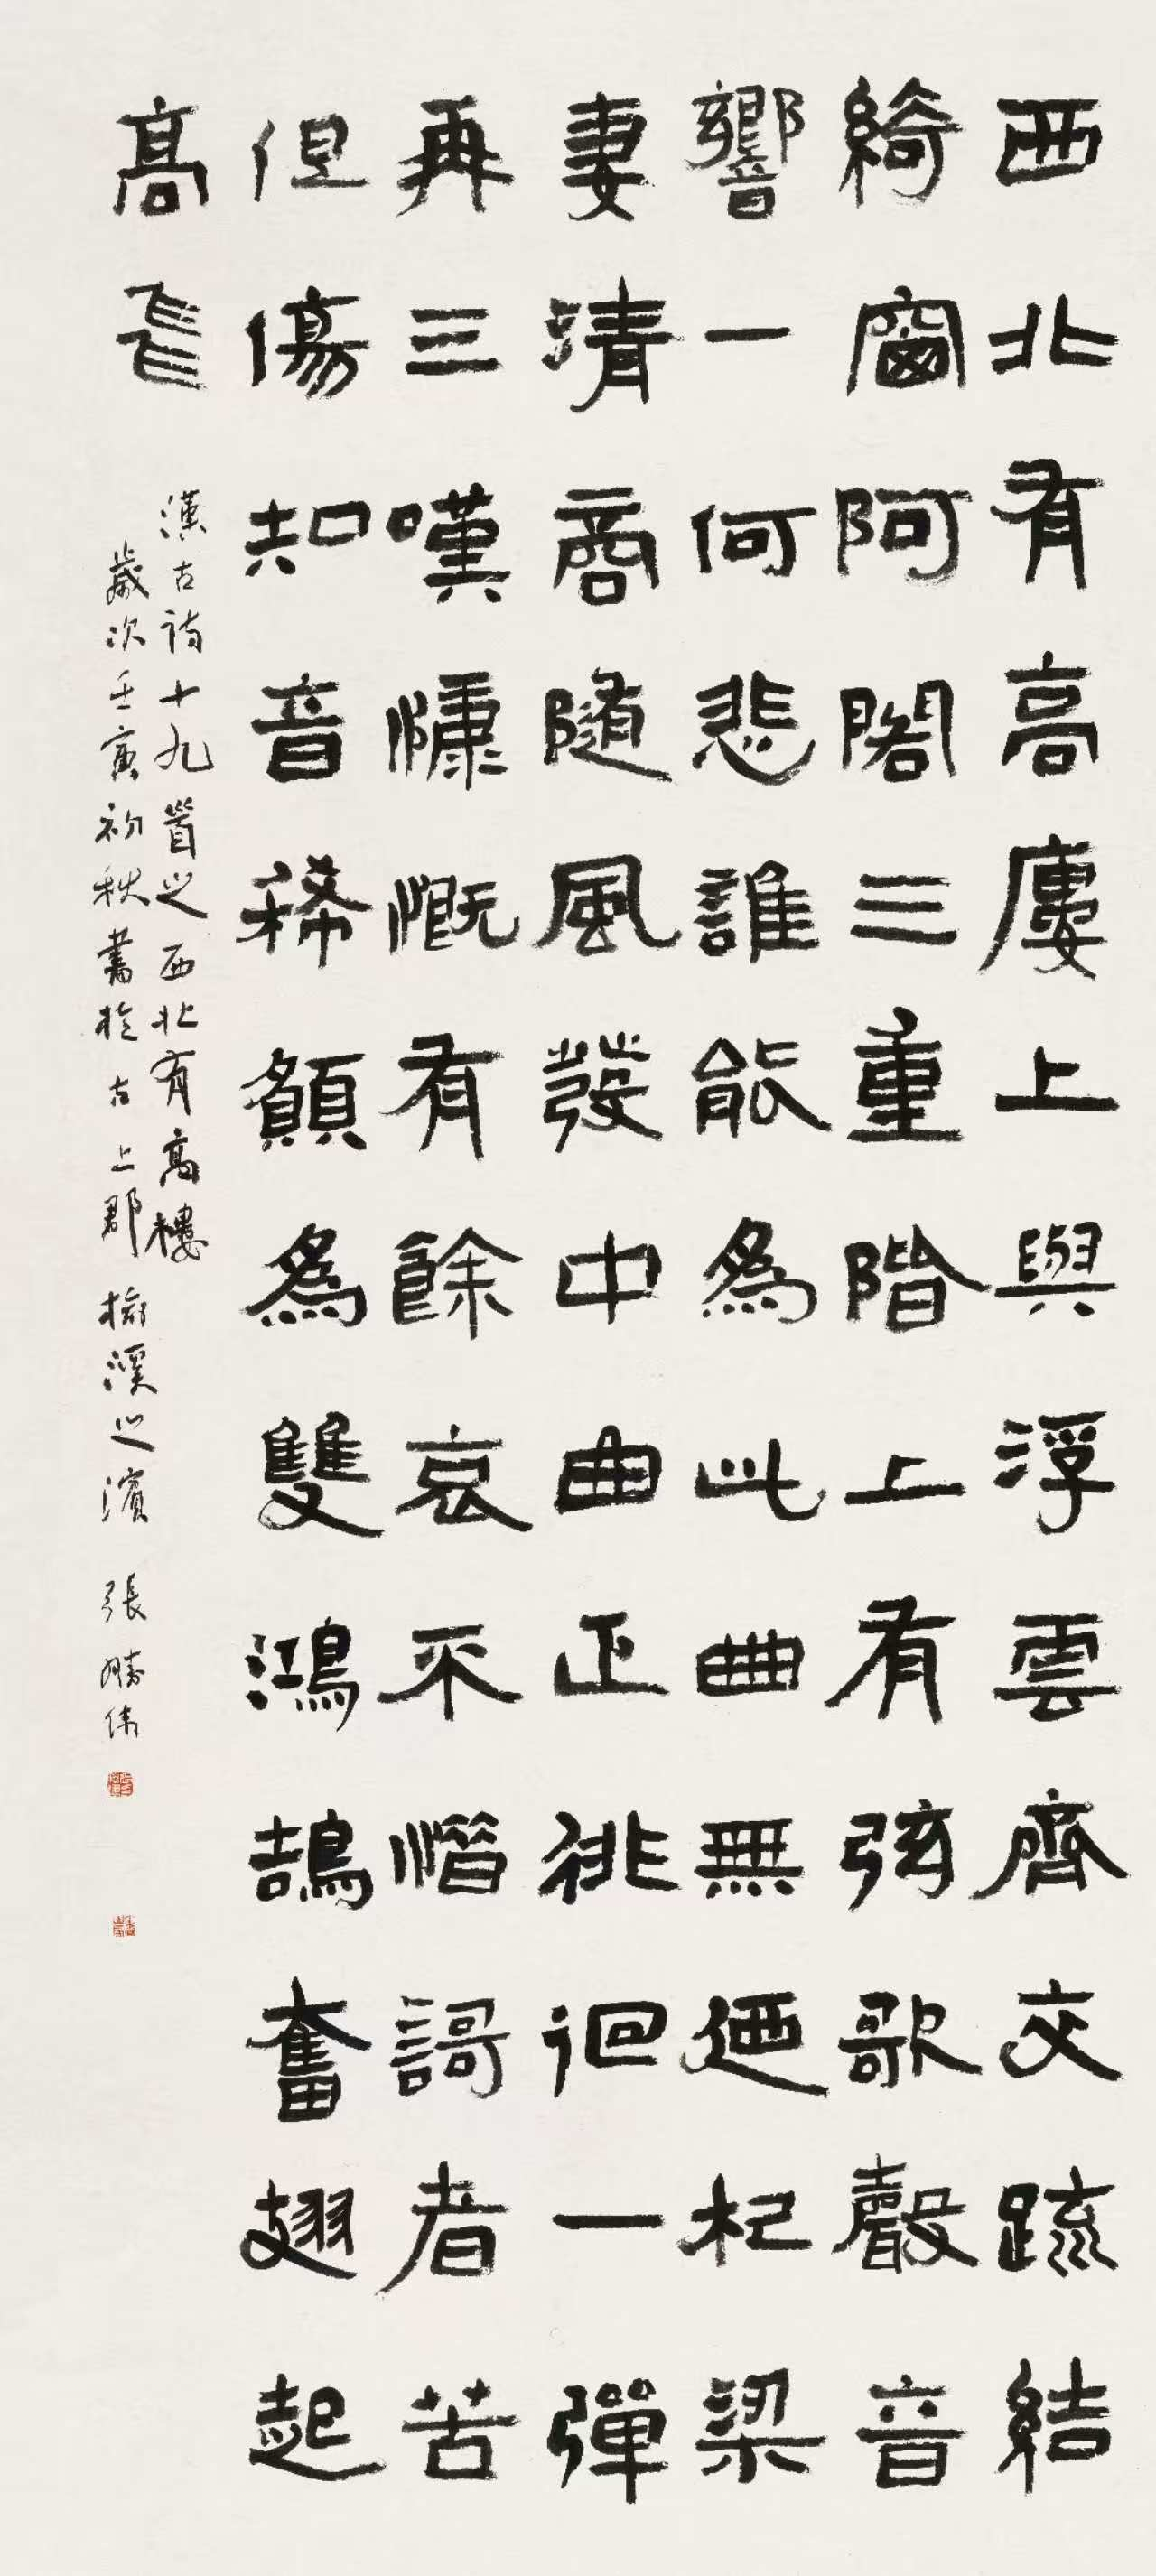 西北有高廔上與浮雲齊交疏結
綺窗阿閣三重階上有弦歌聲音
響一何悲誰能為此曲無迺杞梁
妻清商隨風發中曲正徘徊一彈
再三嘆慷慨有餘哀不惜謌者苦
但傷知音稀願為雙鴻鵠奮翅起
高飛
漢古詩十九首之西北有高樓
歲次壬寅初秋書於古上郡榆溪之濱 張勝偉